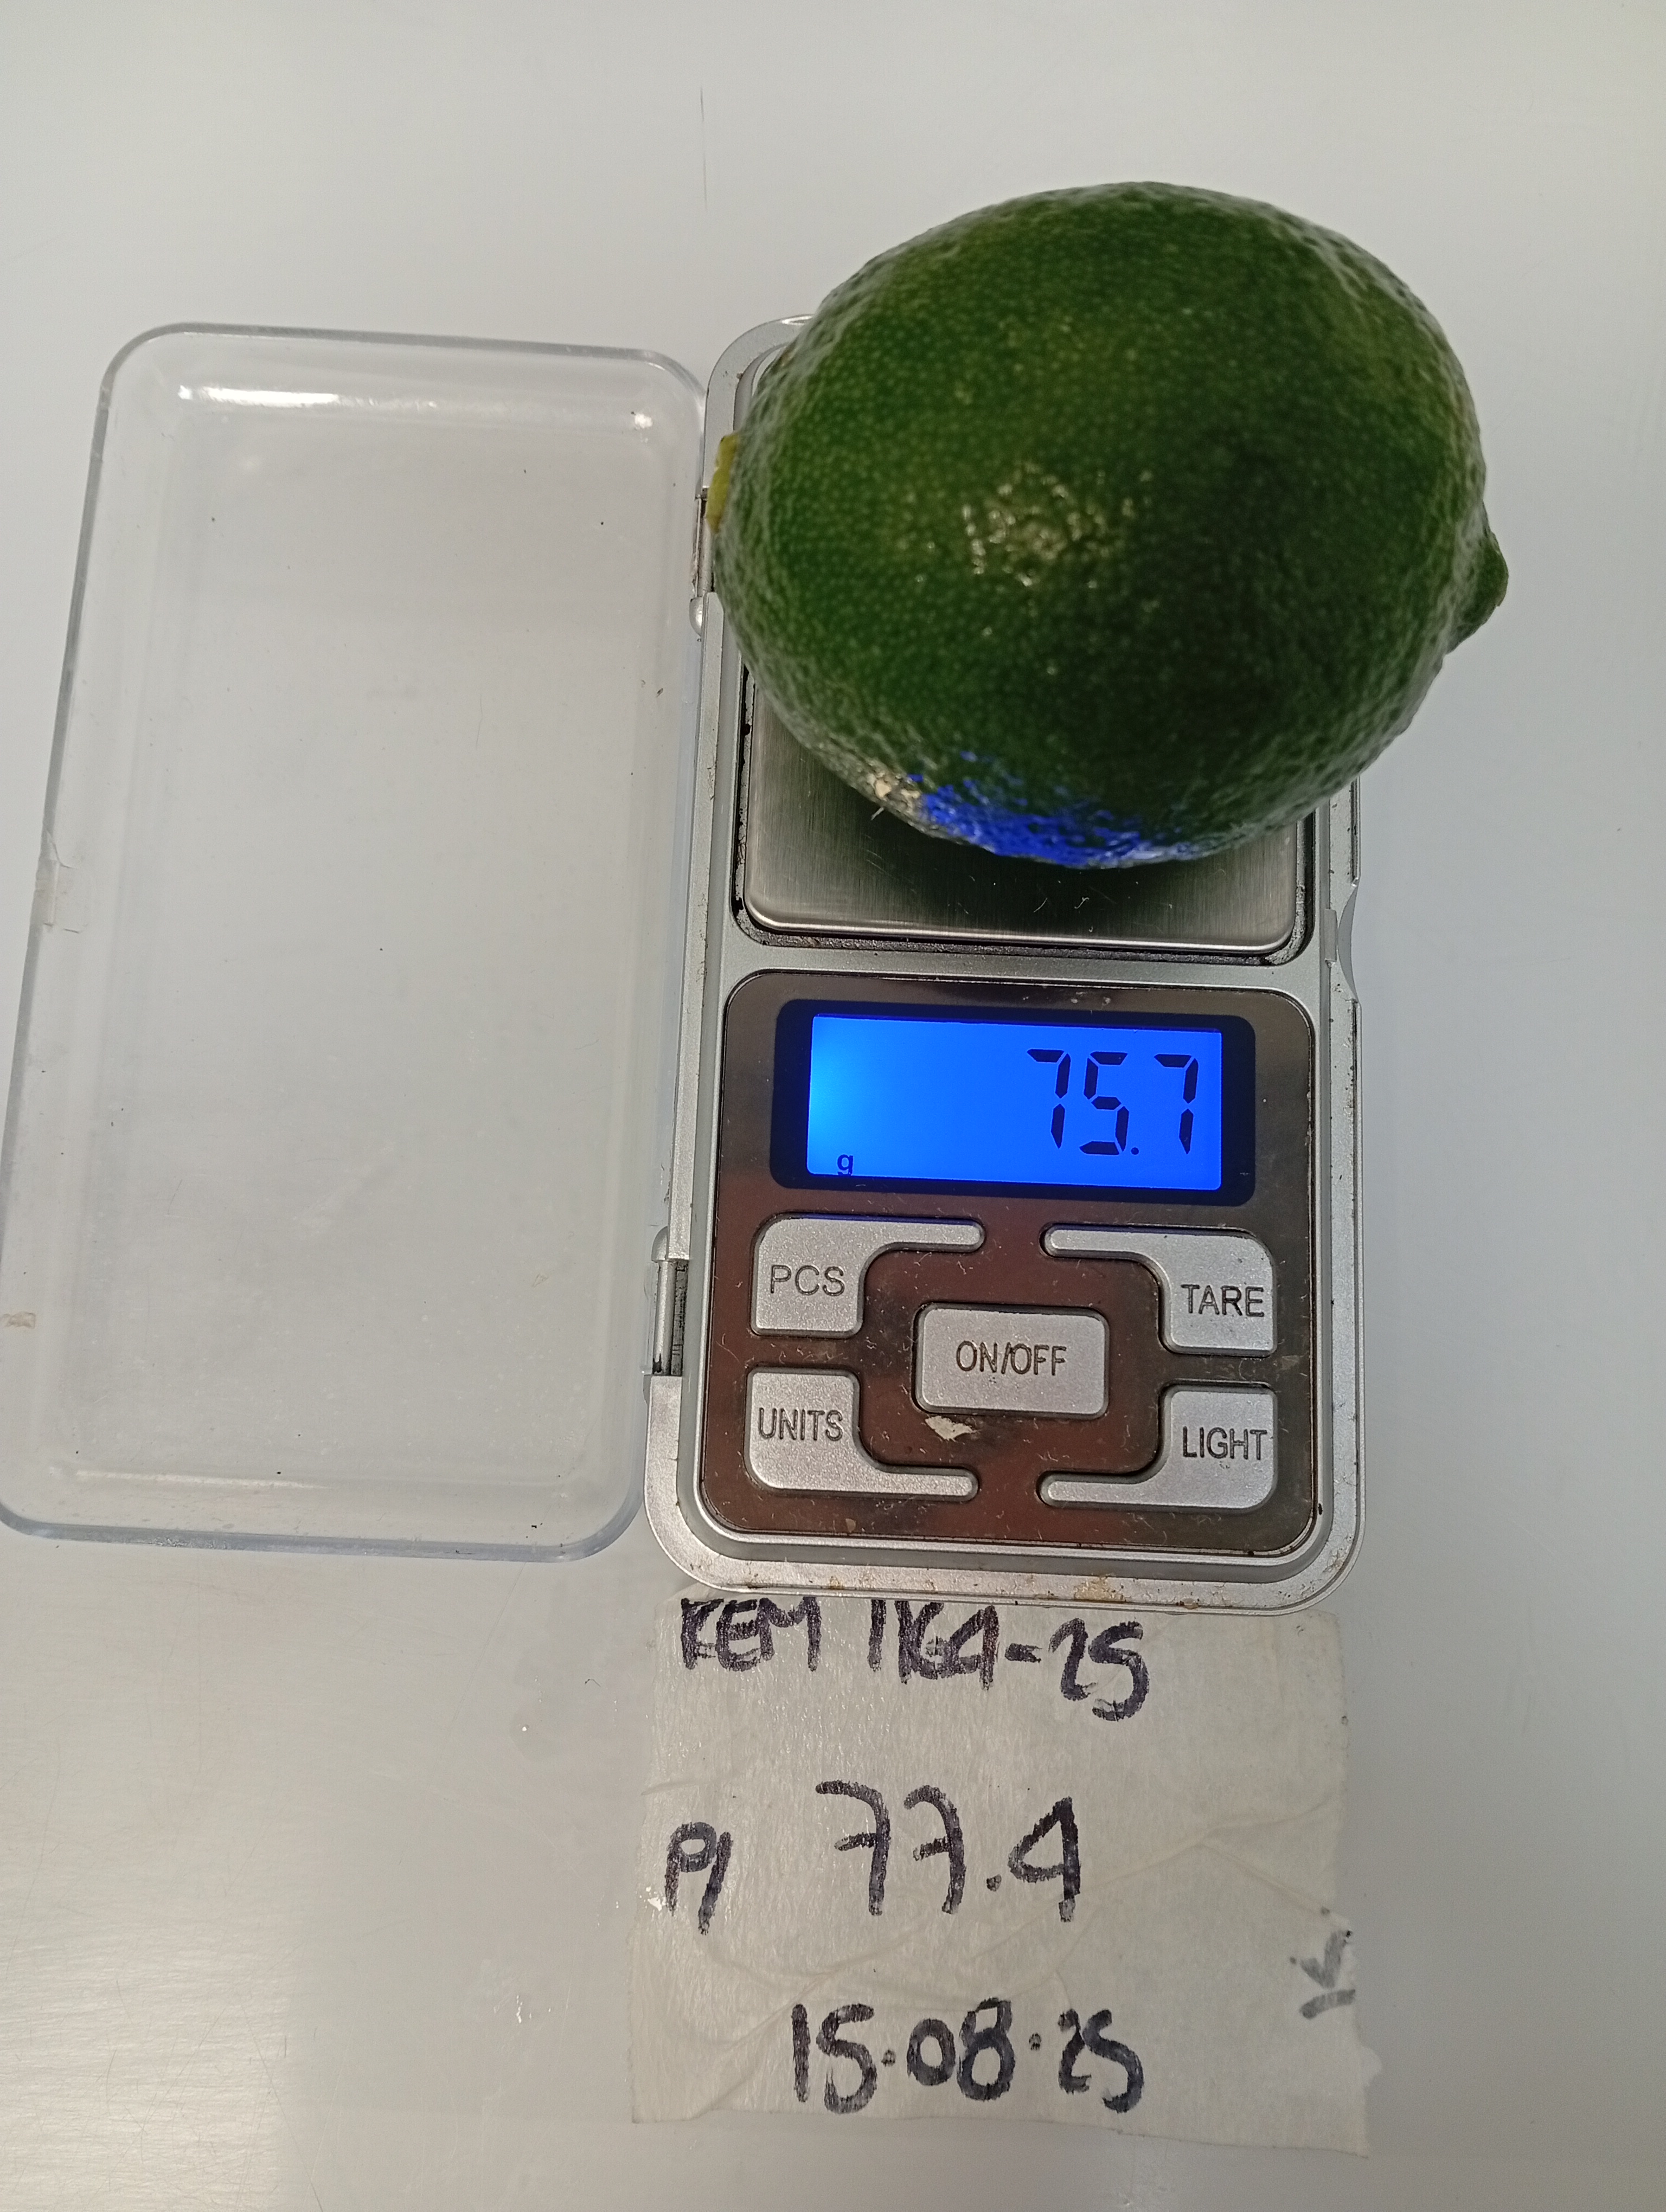 75.7
g
PCS
TARE
ON/OFF
UNITS
LIGHT
REM 1164-25
P1 77.4
15.08.25